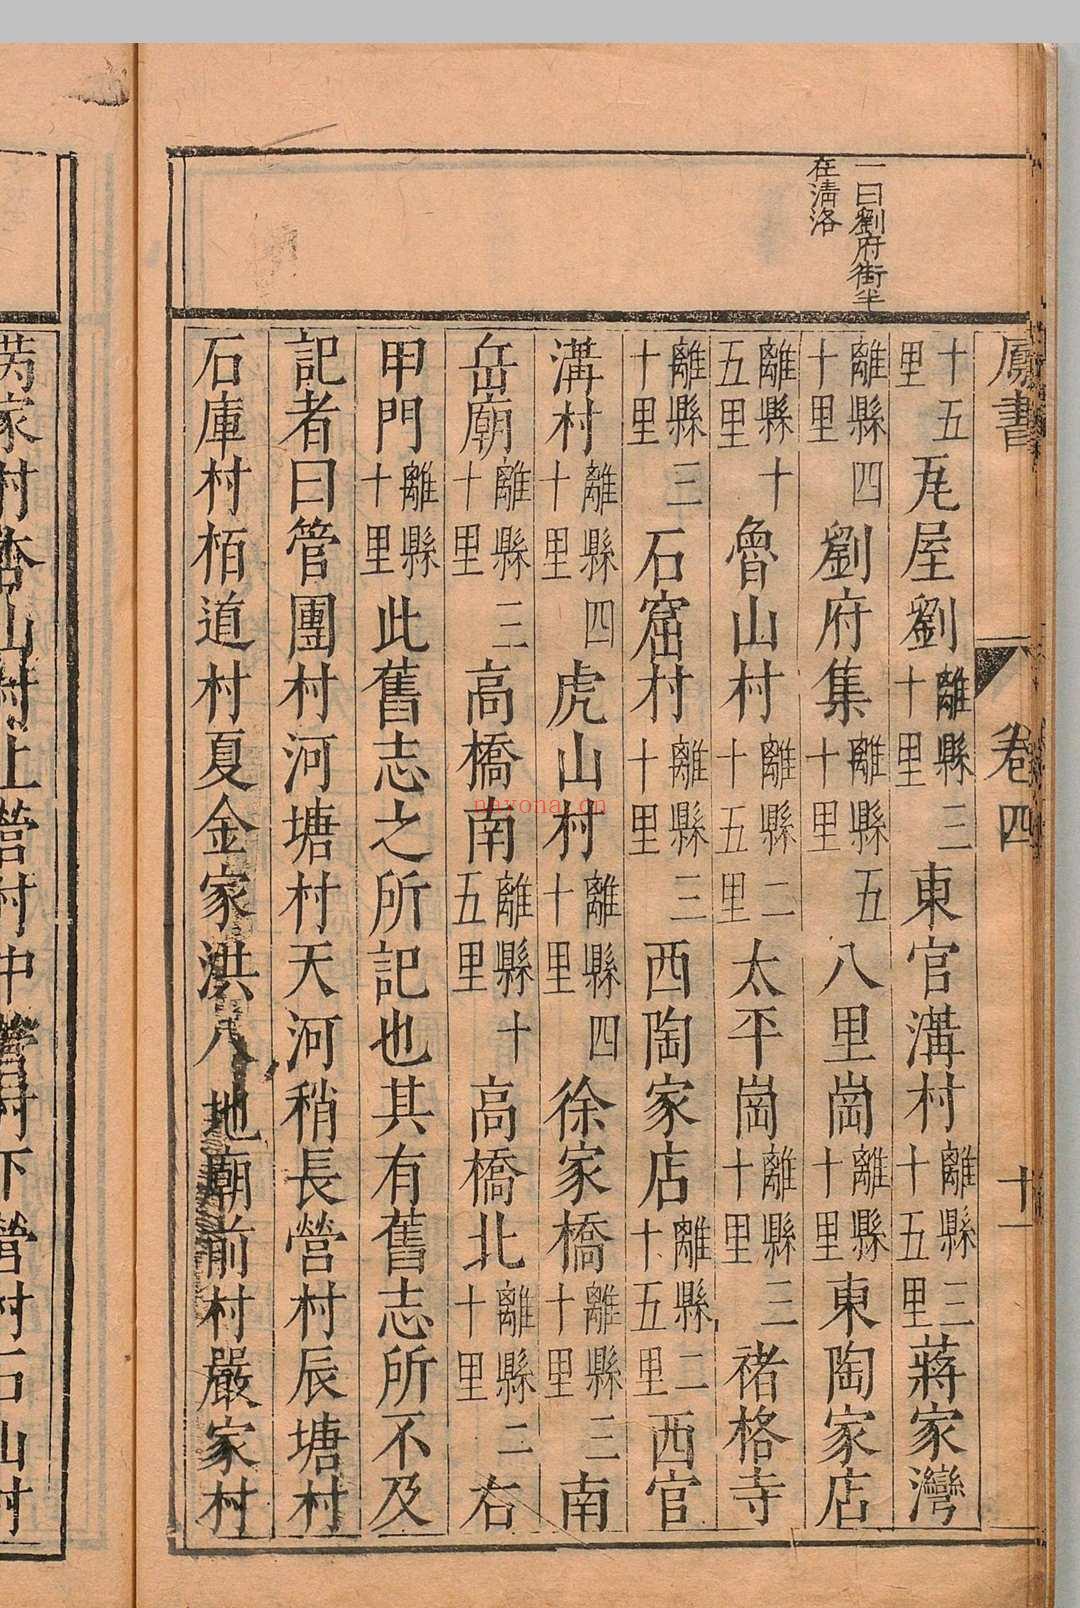 一曰劉府街半
在清洛
鳳書　卷四　十一
十五里瓦屋劉離縣三十里東官溝村離縣三十五里蔣家灣
離縣四十里劉府集離縣五十里八里崗離縣十里東陶家店
離縣十五里魯山村離縣二十五里太平崗離縣三十里褚格寺
離縣三十里石窟村離縣三十里西陶家店離縣二十五里西官
溝村離縣四十里虎山村離縣四十里徐家橋離縣三十里南
岳廟離縣三十里高橋南離縣十五里高橋北離縣二十里右
甲門離縣十里此舊志之所記也其有舊志所不及
記者曰管團村河塘村天河稍長營村辰塘村
石庫村栢道村夏金家洪八地廟前村嚴家村
家村杏山村上營村中營村下營村石山村
naxonai.cn